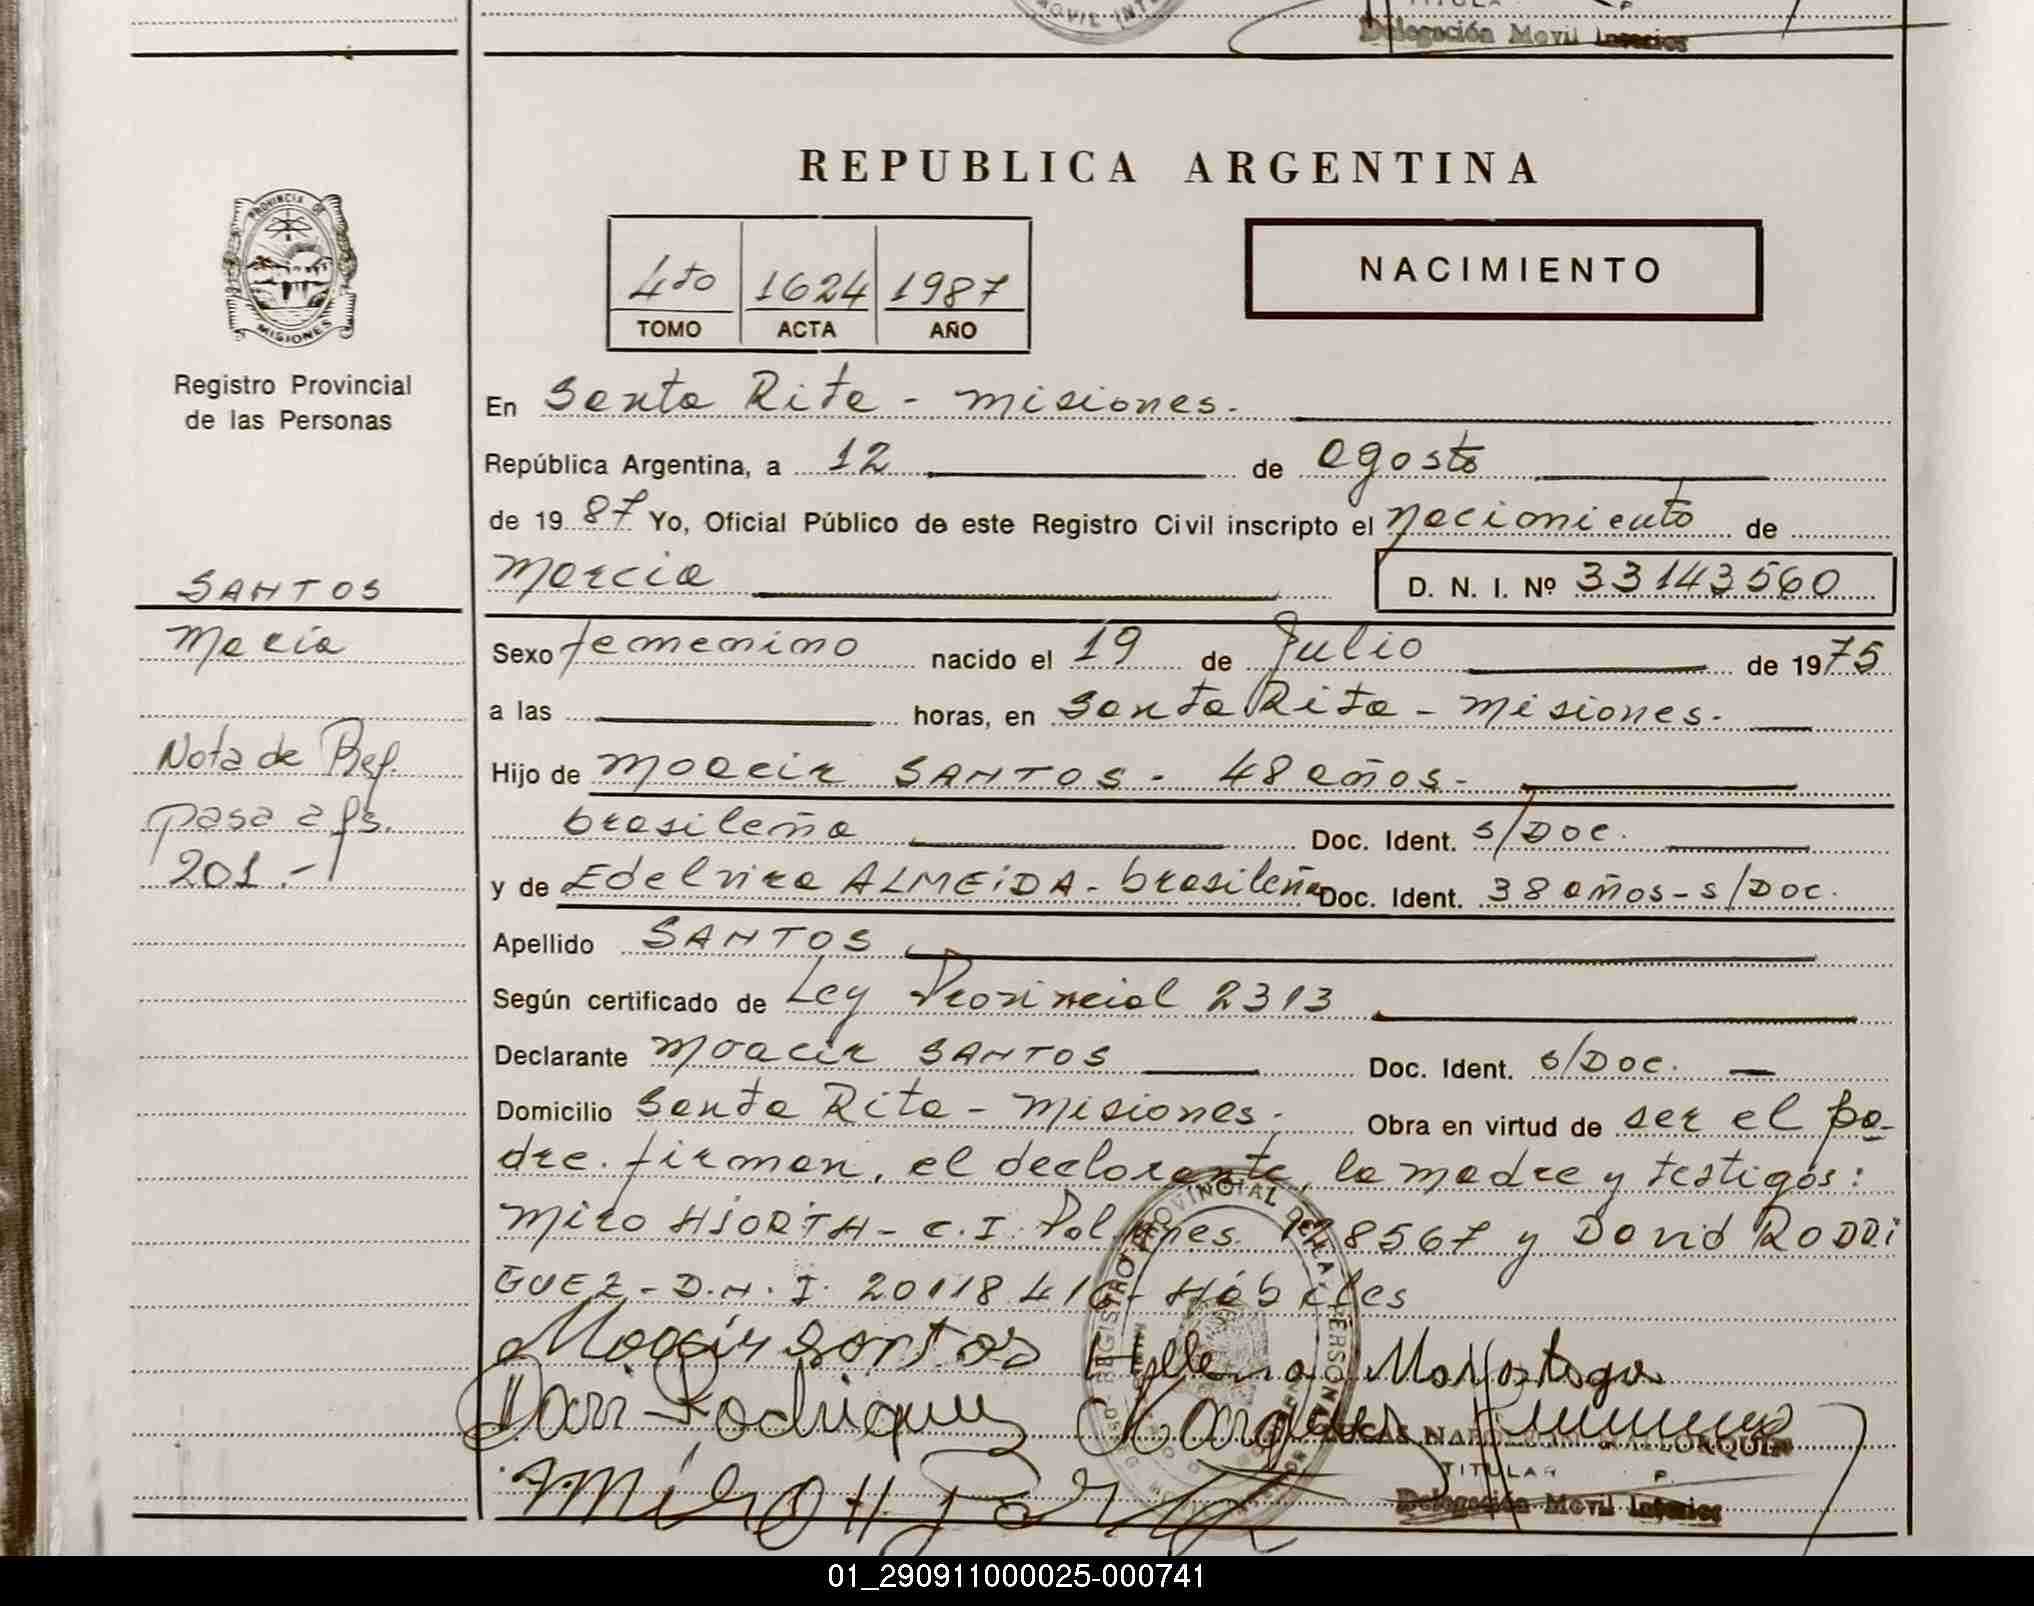 MOVIL INTE
Delegación Movil Interios
REPUBLICA ARGENTINA
PROVINCIA DE
MISIONES
4to 1624 1987
TOMO ACTA AÑO
NACIMIENTO
Registro Provincial
de las Personas
En Santa Rita - Misiones.
República Argentina, a 12 de agosto
de 1987 Yo, Oficial Público de este Registro Civil inscripto el nacimiento de
SANTOS
Marcia D. N. I. Nº 33143560
María
Sexo femenino nacido el 19 de Julio de 1975
a las horas, en Santa Rita - Misiones.
Nota de Ref.
pasa a fs.
201.-
Hijo de Moacir SANTOS - 48 años -
brasileña Doc. Ident. s/Doc.
y de Edelvira ALMEIDA - brasileña Doc. Ident. 38 años - s/Doc.
Apellido SANTOS
Según certificado de Ley Provincial 2313
Declarante Moacir SANTOS Doc. Ident. s/Doc.
Domicilio Santa Rita - Misiones. Obra en virtud de ser el pa-
dre. firman, el declarante, la madre y testigos:
Miro HJORTH - C.I. Pol. Mnes. 128567 y David RODRI
GUEZ - D.N.I. 20118.416 - Hábiles
Moacir Santos
Dari Rodriguez
Miro H
REGISTRO PROVINCIAL DE LAS PERSONAS
LUCAS
TITULAR
Delegación Movil Interios
01_290911000025-000741